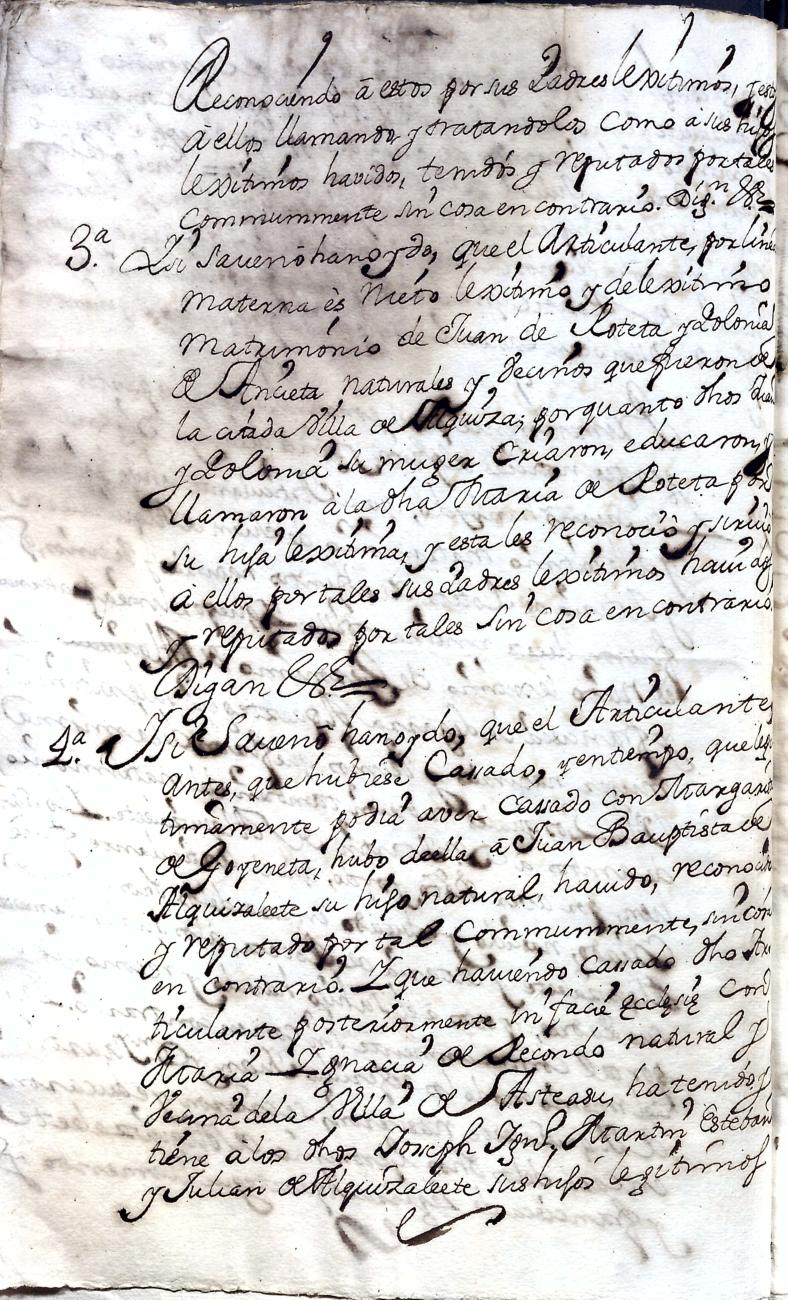 Reconociendo à estos por sus Padres lexitimos, y estos
à ellos llamando, y tratandolos como à sus hijos
lexitimos havidos, tenidos y reputados por tales
Communmente sin cosa en contrario. Dig.n &.
3.a Ysi saven ò han oydo, que el Articulante, por linea
materna ès Nieto lexitimo y de lexitimo
matrimonio de Juan de Roteta y Polonia
de Ancieta naturales y vecinos que fueron de
la citada Villa de Alquiza; por quanto dhos Juan
y Polonia su muger Criaron, educaron, y
llamaron à la dha Maria de Roteta por
su hija lexitima, y esta les reconociò y sirviò
à ellos por tales sus Padres lexitimos havidos
y reputados por tales sin cosa en contrario
Digan &.
4.a Ysi Saven ò han oydo, que el Articulante
antes, que hubiese Cassado, y en tiempo, que legi
timamente podia aver Cassado con Margarita
de Goyeneta, hubo de ella à Juan Bauptista de
Alquizalete su hijo natural, havido, reconocido
y reputado por tal Communmente, sin cosa
en contrario. Y que haviendo cassado dho Ar
ticulante posteriormente in facie ecclesię con
Maria Ygnacia de Recondo natural y
vecina de la Villa de Asteasu, ha tenido, y
tiene à los dhos Joseph Ign.o, Martin Esteban
y Julian de Alquizalete sus hijos legitimos